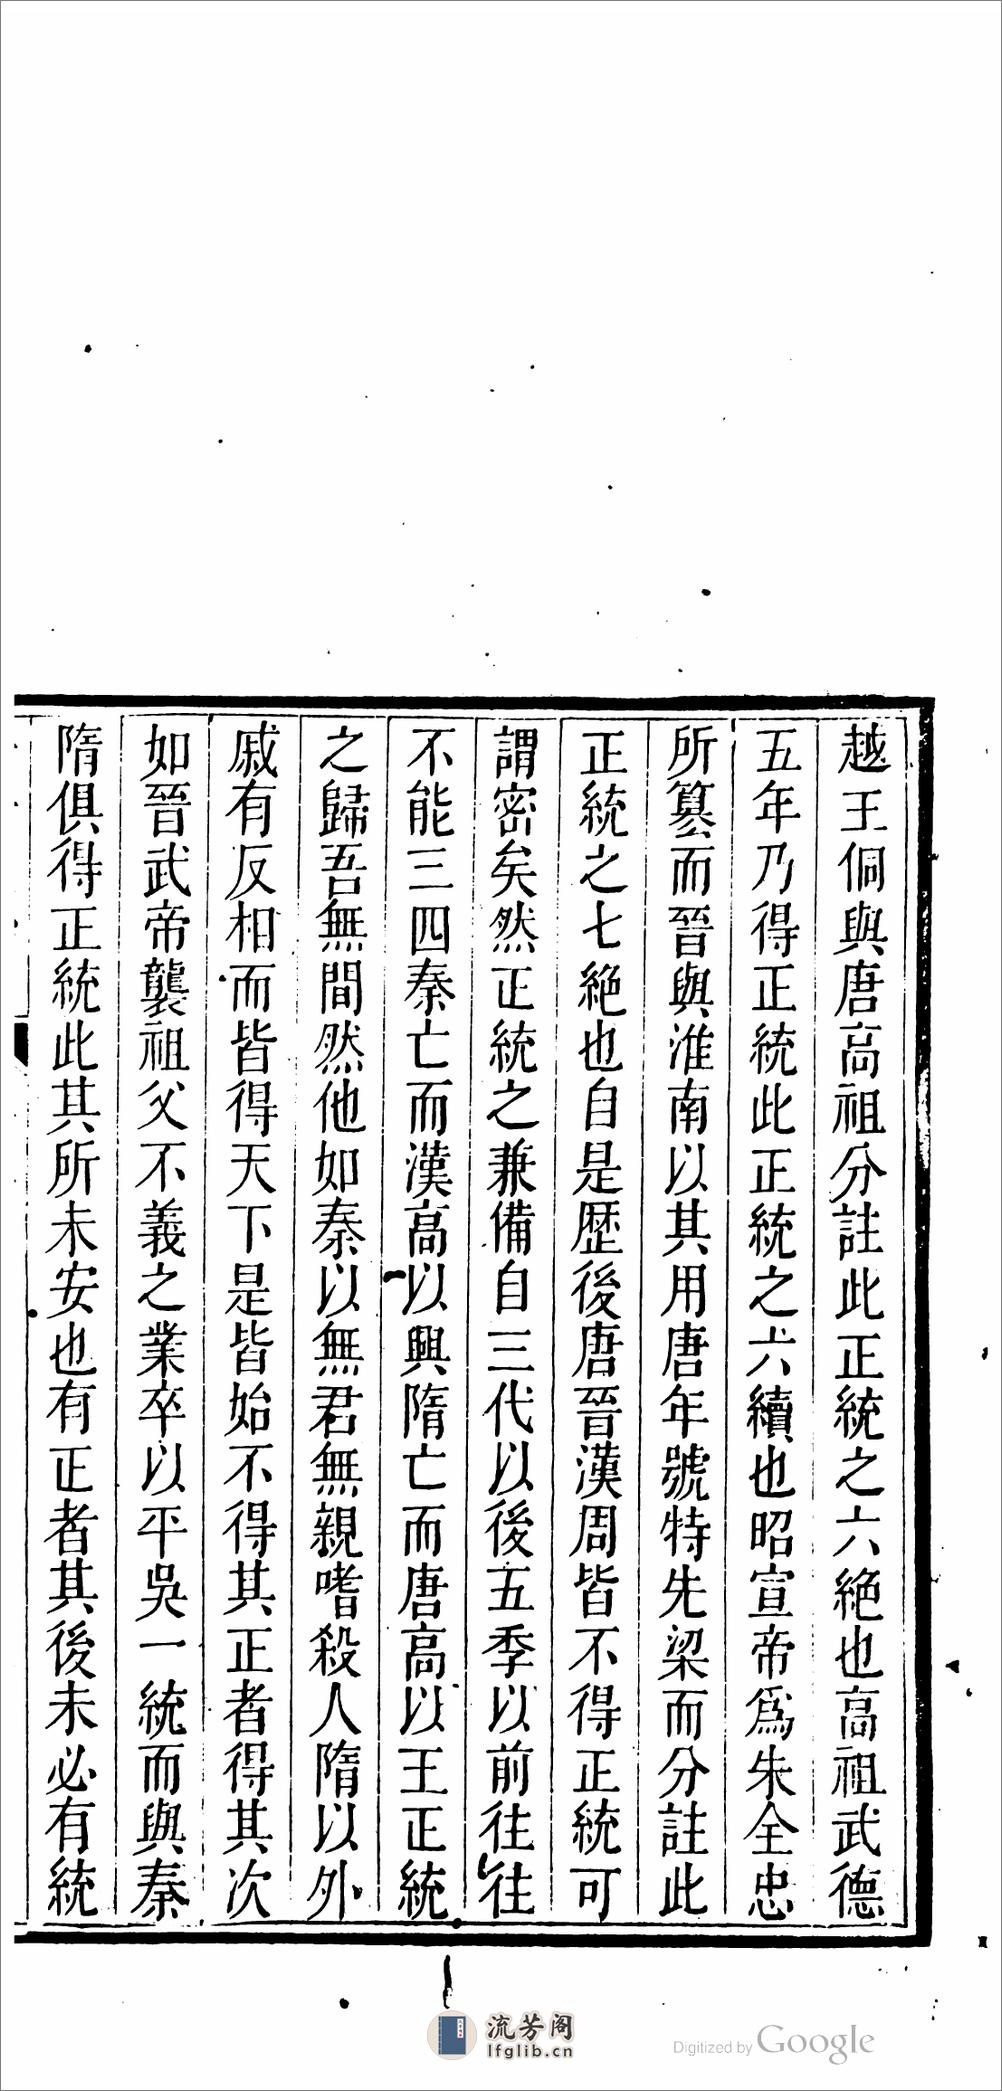 越王侗與唐高祖分註此正統之六絶也高祖武德
五年乃得正統此正統之六續也昭宣帝爲朱全忠
所簒而晉與淮南以其用唐年號特先梁而分註此
正統之七絶也自是歴後唐晉漢周皆不得正統可
謂密矣然正統之兼備自三代以後五季以前往往
不能三四秦亡而漢高以興隋亡而唐高以王正統
之歸吾無間然他如秦以無君無親嗜殺人隋以外
戚有反相而皆得天下是皆始不得其正者得其次
如晉武帝襲祖父不義之業卒以平吳一統而與秦
隋俱得正統此其所未安也有正者其後未必有統
流芳阁
lfglib.cn
Digitized by Google